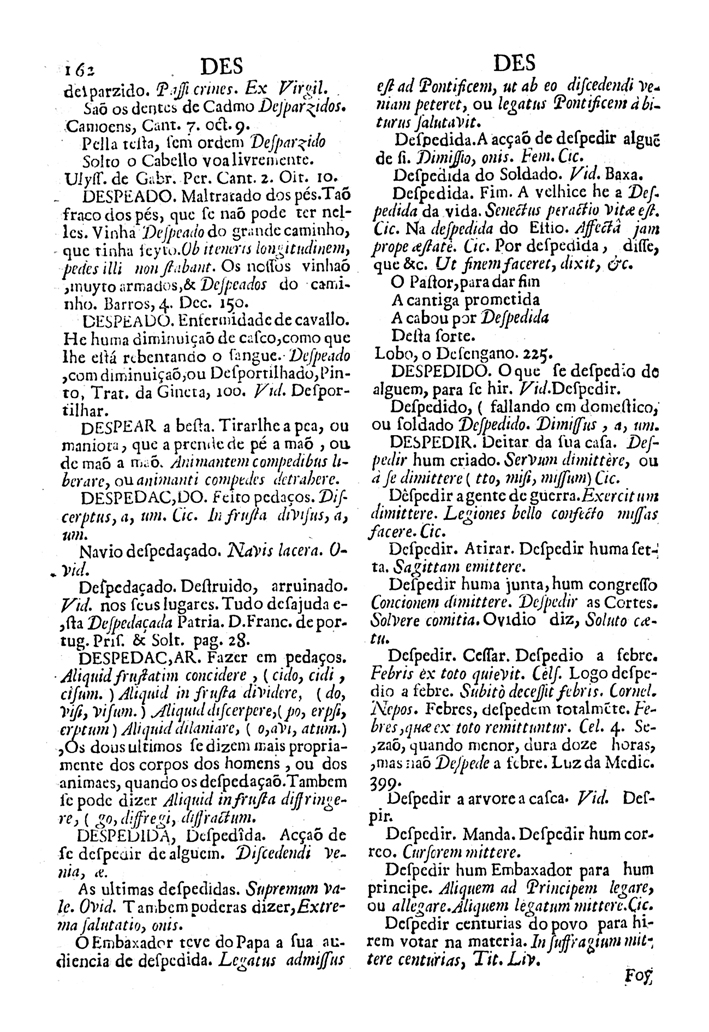 162 DES
desparzido. Passi crines. Ex Virgil.
Saõ os dentes de Cadmo Desparzidos.
Camoens, Cant. 7. oct. 9.
Pella testa, sem ordem Desparzido
Solto o Cabello voa livremente.
Ulyss. de Gabr. Per. Cant. 2. Oit. 10.
DESPEADO. Maltratado dos pés. Taõ
fraco dos pés, que se naõ pode ter nel-
les. Vinha Despeado do grande caminho,
que tinha feyto. Ob iteneris longitudinem,
pedes illi non stabant. Os nossos vinhaõ
,muyto armados, & Despeados do cami-
nho. Barros, 4. Dec. 150.
DESPEADO. Enfermidade de cavallo.
He huma diminuiçaõ de casco, como que
lhe está rebentando o sangue. Despeado
,com diminuiçaõ, ou Desportilhado, Pin-
to, Trat. da Gineta, 100. Vid. Despor-
tilhar.
DESPEAR a besta. Tirarlhe a pea, ou
maniota, que a prende de pé a maõ, ou
de maõ a maõ. Animantem compedibus li-
berare, ou animanti compedes detrahere.
DESPEDAC,DO. Feito pedaços. Dis-
cerptus, a, um. Cic. In frusta divisus, a,
um.
Navio despedaçado. Navis lacera. O-
vid.
Despedaçado. Destruido, arruinado.
Vid. nos seus lugares. Tudo desajuda e-
,sta Despedaçada Patria. D. Franc. de por-
tug. Pris. & Solt. pag. 28.
DESPEDAC,AR. Fazer em pedaços.
Aliquid frustatim concidere, (cido, cidi,
cisum.) Aliquid in frusta dividere, (do,
visi, visum.) Aliquid discerpere, (po, erpsi,
erptum) Aliquid dilaniare, (o, avi, atum.)
,Os dous ultimos se dizem mais propria-
mente dos corpos dos homens, ou dos
animaes, quando os despedaçaõ. Tambem
se pode dizer Aliquid in frusta diffringe-
re, (go, diffregi, diffractum.
DESPEDIDA, Despedîda. Acçaõ de
se despedir de alguem. Discedendi ve-
nia, æ.
As ultimas despedidas. Supremum va-
le. Ovid. Tambem poderas dizer, Extre-
ma salutatio, onis.
O Embaxador teve do Papa a sua au-
diencia de despedida. Legatus admissus
DES
est ad Pontificem, ut ab eo discedendi ve-
niam peteret, ou legatus Pontificem àbi-
turus salutavit.
Despedida. A acçaõ de despedir alguẽ
de si. Dimissio, onis. Fem. Cic.
Despedida do Soldado. Vid. Baxa.
Despedida. Fim. A velhice he a Des-
pedida da vida. Senectus peractio vitæ est.
Cic. Na despedida do Estio. Affectâ jam
prope æstate. Cic. Por despedida, disse,
que &c. Ut finem faceret, dixit, &c.
O Pastor, para dar fim
A cantiga prometida
Acabou por Despedida
Desta sorte.
Lobo, o Desengano. 225.
DESPEDIDO. O que se despedio de
alguem, para se hir. Vid. Despedir.
Despedido, (fallando em domestico,
ou soldado Despedido. Dimissus, a, um.
DESPEDIR. Deitar da sua casa. Des-
pedir hum criado. Servum dimittere, ou
à se dimittere (tto, misi, missum) Cic.
Despedir a gente de guerra. Exercitum
dimittere. Legiones bello confecto missas
facere. Cic.
Despedir. Atirar. Despedir huma set-
ta. Sagittam emittere.
Despedir huma junta, hum congresso
Concionem dimittere. Despedir as Cortes.
Solvere comitia. Ovidio diz, Soluto cœ-
tu.
Despedir. Cessar. Despedio a febre.
Febris ex toto quievit. Cels. Logo despe-
dio a febre. Subitò decessit febris. Cornel.
Nepos. Febres, despedem totalmẽte. Fe-
bres, quæ ex toto remittuntur. Cel. 4. Se-
,zaõ, quando menor, dura doze horas,
,mas naõ Despede a febre. Luz da Medic.
399.
Despedir a arvore a casca. Vid. Des-
pir.
Despedir. Manda. Despedir hum cor-
reo. Cursorem mittere.
Despedir hum Embaxador para hum
principe. Aliquem ad Principem legare,
ou allegare. Aliquem legatum mittere. Cic.
Despedir centurias do povo para hi-
rem votar na materia. In suffragium mit-
tere centurias, Tit. Liv.